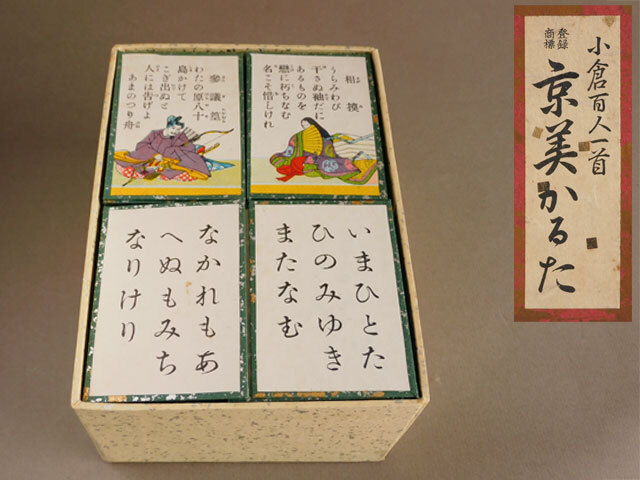 參議篁
わたの原八十
島かけて
こぎ出ぬと
人には告げよ
あまのつり舟
相摸
うらみわび
干さぬ袖だに
あるものを
戀に朽ちなむ
名こそ惜しけれ
なかれもあ
へぬもみち
なりけり
いまひとた
ひのみゆき
またなむ
登録
商標
小倉百人一首
京美かるた